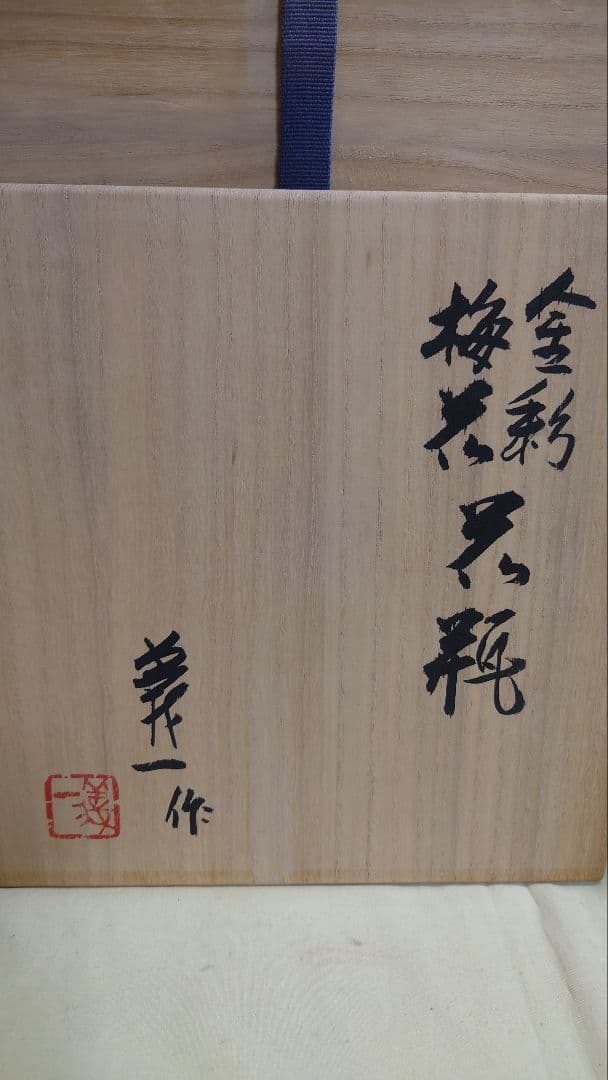 金彩
梅花
花瓶
義一
作
義一